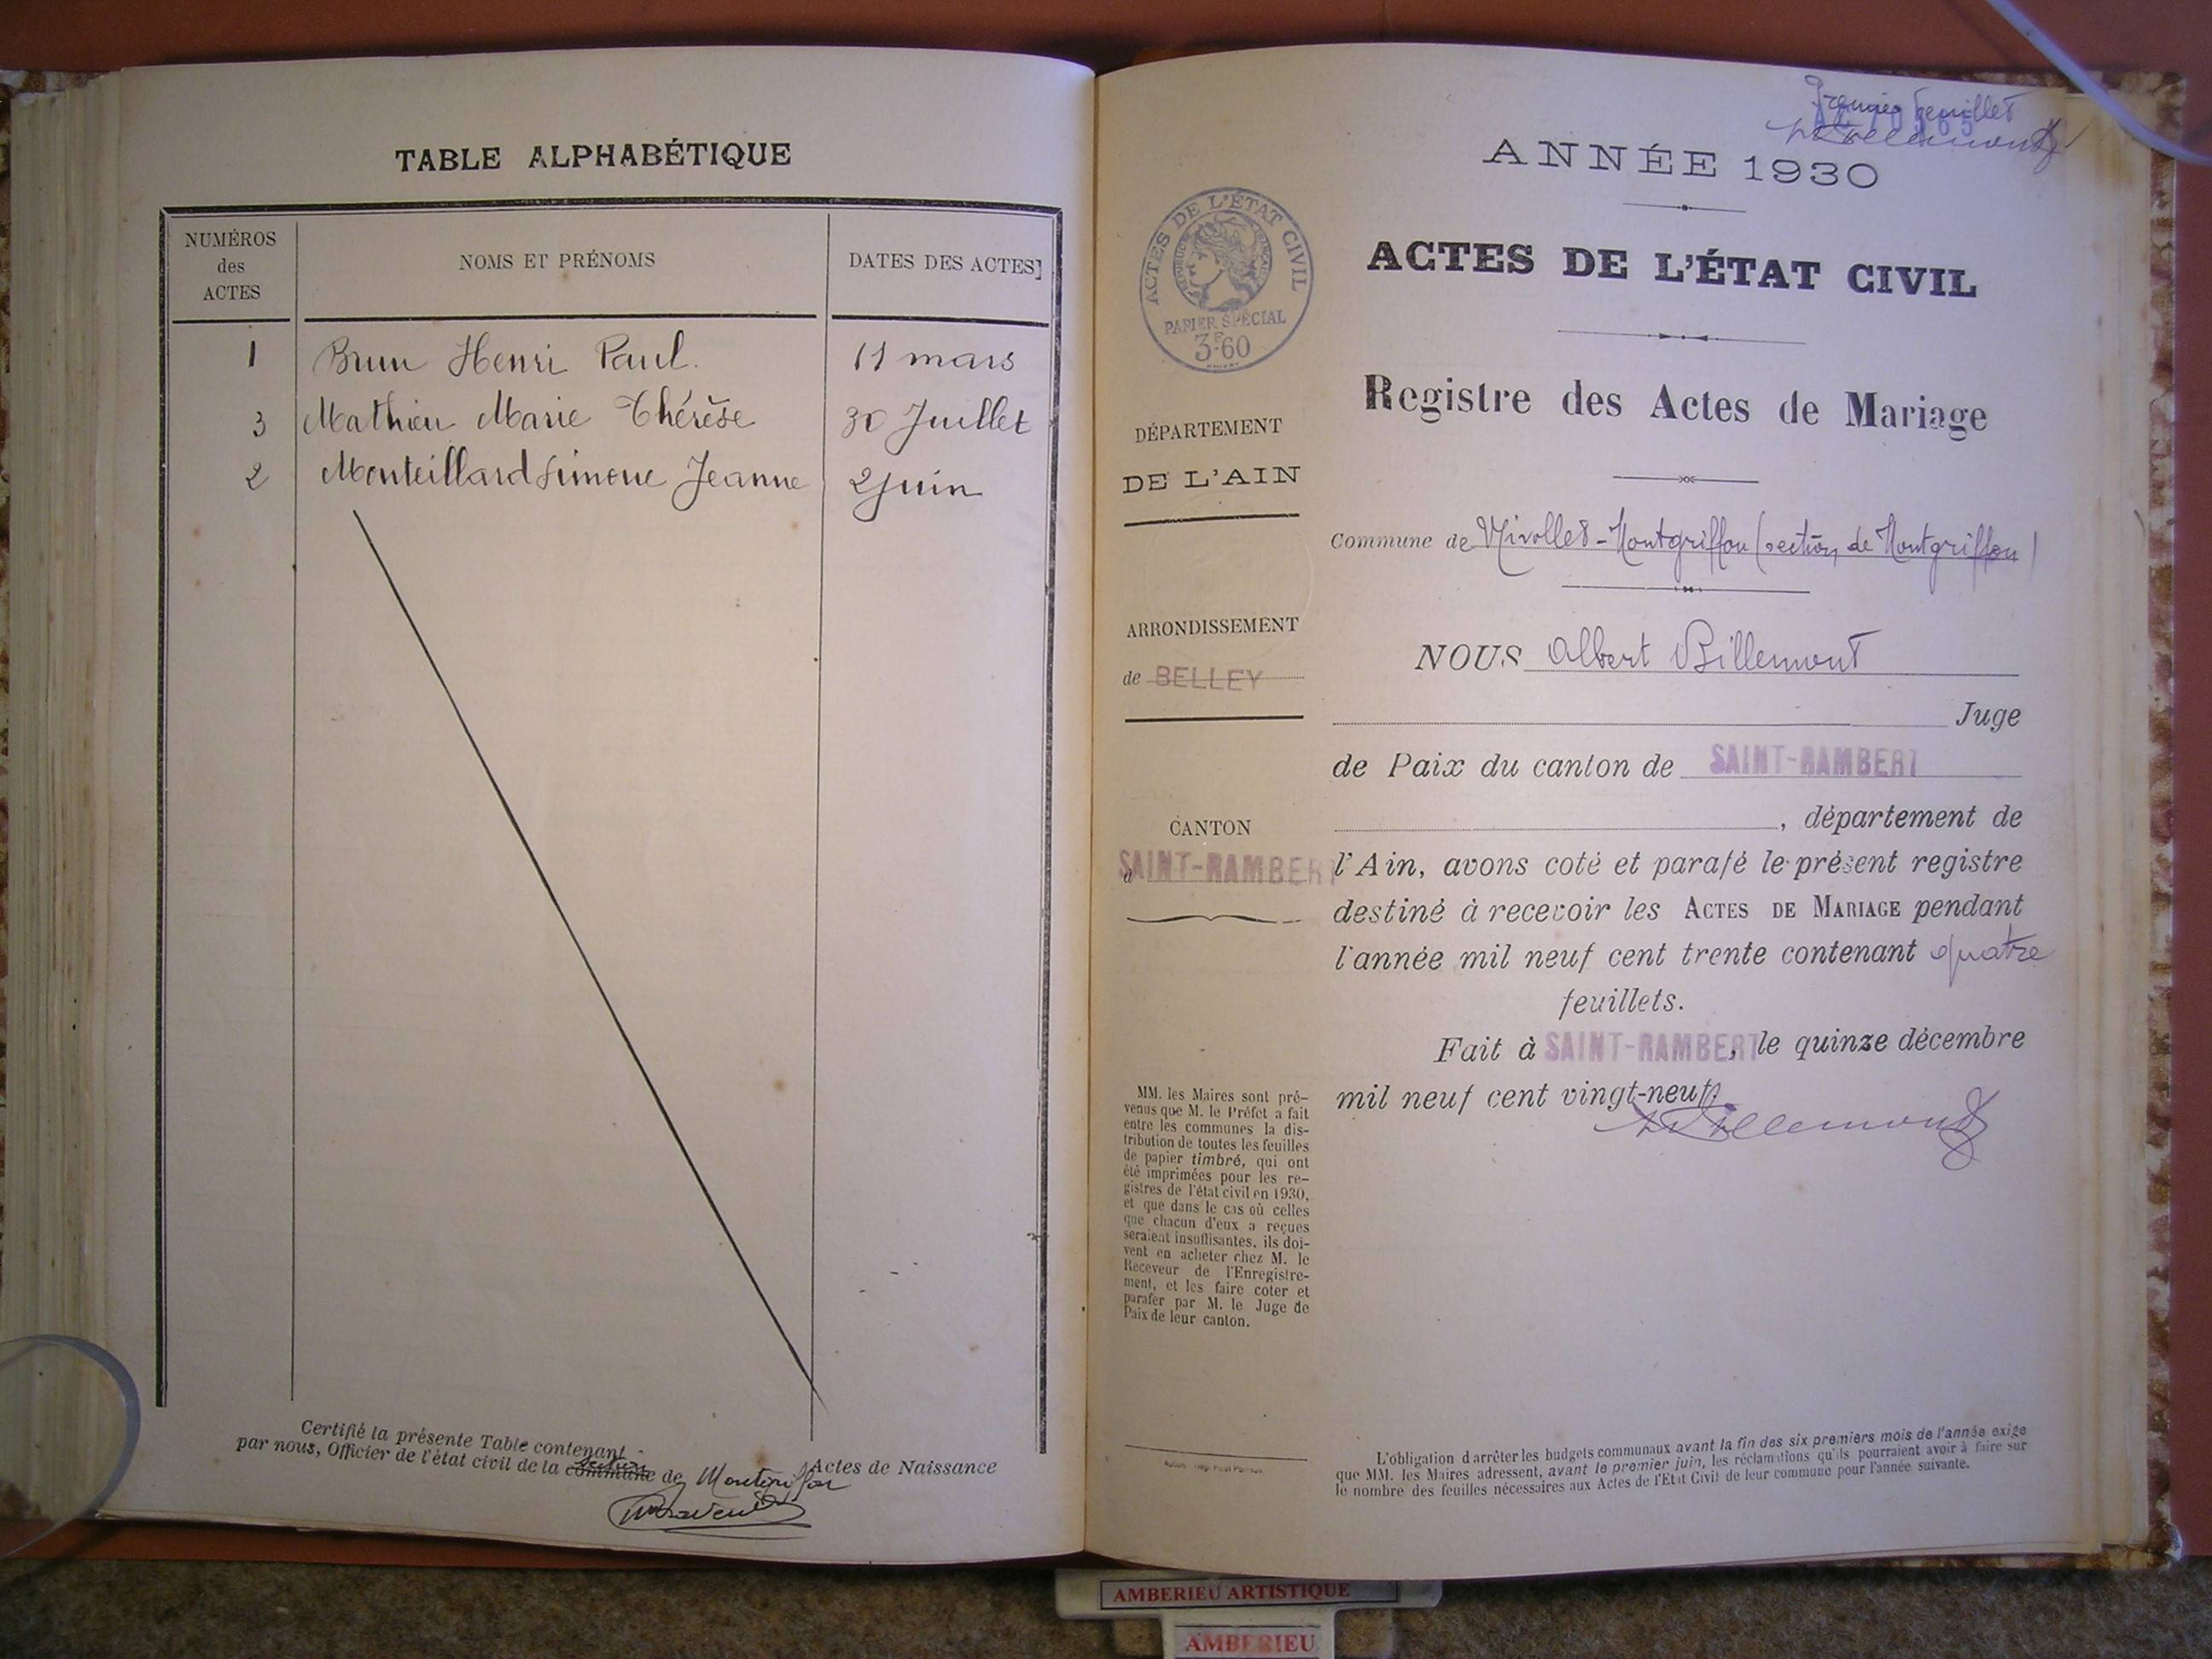 TABLE ALPHABÉTIQUE
NUMÉROS
des
ACTES
NOMS ET PRÉNOMS
DATES DES ACTES
1 Brun Henri Paul. 11 mars
3 Mathieu Marie Thérèse 30 Juillet
2 Monteillard Simone Jeanne 2 juin
Certifié la présente Table contenant
Actes de Naissance
par nous, Officier de l'état civil de la commune section de Montgriffon
Premier feuillet
ANNÉE 1930
ACTES DE L'ÉTAT CIVIL
PAPIER SPÉCIAL
3F60
ACTES DE L'ÉTAT CIVIL
Registre des Actes de Mariage
DÉPARTEMENT
DE L'AIN
Commune de Nivolles-Montgriffon (section de Montgriffon)
ARRONDISSEMENT
de BELLEY
NOUS Albert Billemont
Juge
de Paix du canton de SAINT-RAMBERT
CANTON
d SAINT-RAMBERT
, département de
l'Ain, avons coté et parafé le présent registre
destiné à recevoir les ACTES DE MARIAGE pendant
l'année mil neuf cent trente contenant quatre
feuillets.
Fait à SAINT-RAMBERT, le quinze décembre
mil neuf cent vingt-neuf.
MM. les Maires sont pré-
venus que M. le Préfet a fait
entre les communes la dis-
tribution de toutes les feuilles
de papier timbré, qui ont
été imprimées pour les re-
gistres de l'état civil en 1930,
et que dans le cas où celles
que chacun d'eux a reçues
seraient insuffisantes, ils doi-
vent en acheter chez M. le
Receveur de l'Enregistre-
ment, et les faire coter et
parafer par M. le Juge de
Paix de leur canton.
L'obligation d'arrêter les budgets communaux avant la fin des six premiers mois de l'année exige
que MM. les Maires adressent, avant le premier juin, les réclamations qu'ils pourraient avoir à faire sur
le nombre des feuilles nécessaires aux Actes de l'Etat Civil de leur commune pour l'année suivante.
AMBERIEU ARTISTIQUE
AMBERIEU